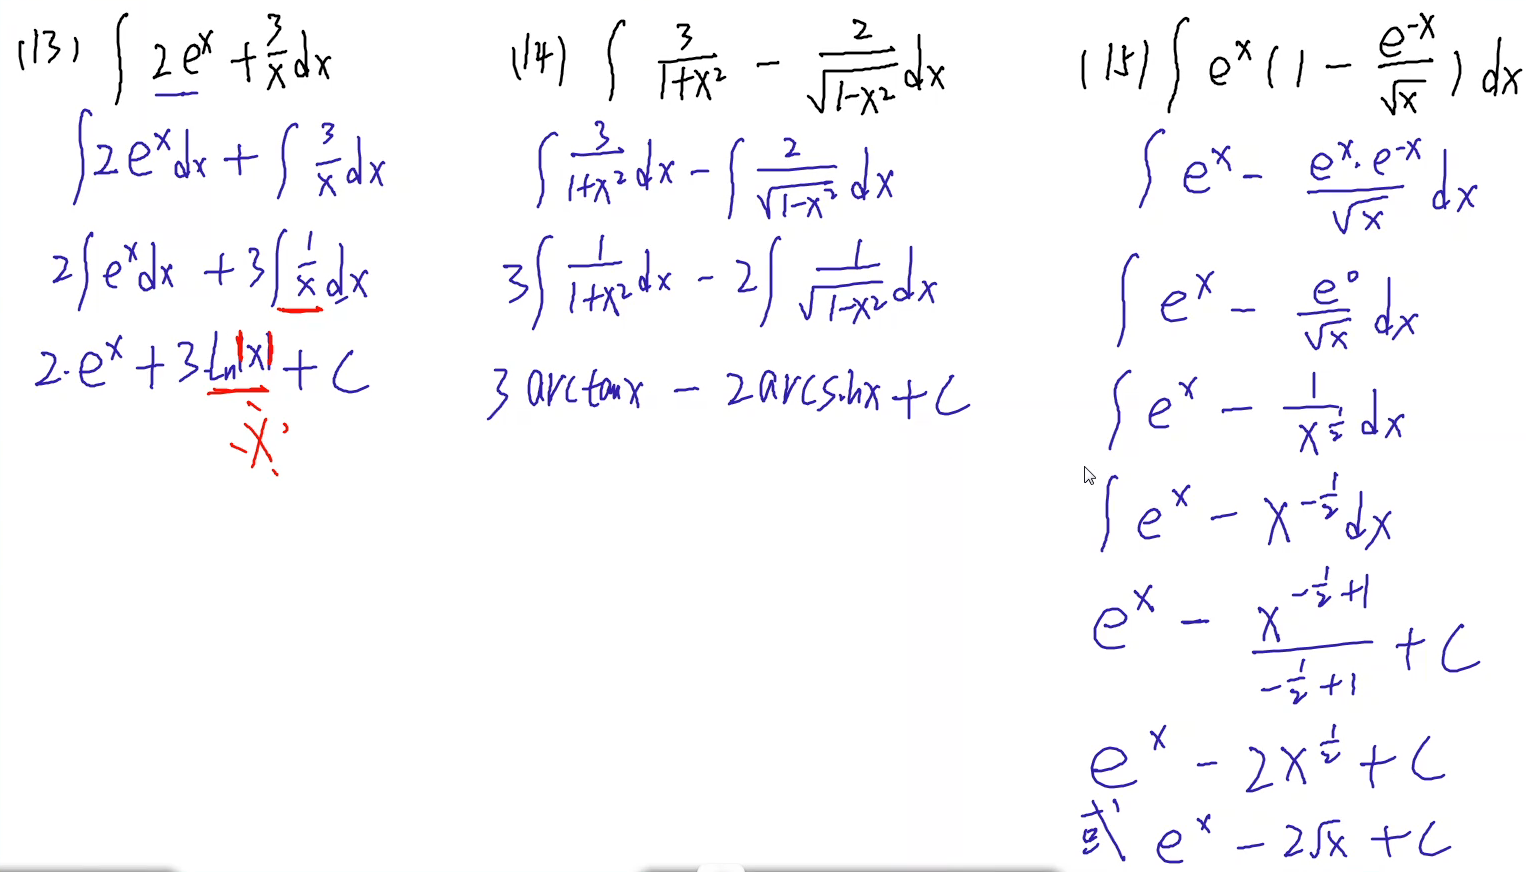 (13) ∫ 2e^x + 3/x dx
∫2e^x dx + ∫ 3/x dx
2∫e^x dx + 3∫ 1/x dx
2·e^x + 3 ln|x| + C
x
(14) ∫ 3/(1+x²) - 2/√(1-x²) dx
∫ 3/(1+x²) dx - ∫ 2/√(1-x²) dx
3∫ 1/(1+x²) dx - 2∫ 1/√(1-x²) dx
3 arctanx - 2arcsinx + C
(15) ∫ e^x (1 - e^(-x)/√x) dx
∫ e^x - (e^x · e^(-x))/√x dx
∫ e^x - e^0/√x dx
∫ e^x - 1/x^(1/2) dx
∫ e^x - x^(-1/2) dx
e^x - x^(-1/2+1)/(-1/2+1) + C
e^x - 2x^(1/2) + C
或 e^x - 2√x + C